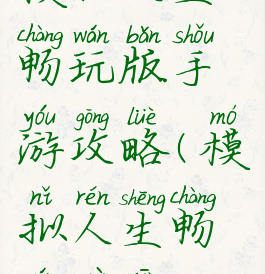 chàng wán bǎn shǒu
畅玩版手
yóu gōng lüè mó
游攻略(模
nǐ rén shēng chàng
拟人生畅